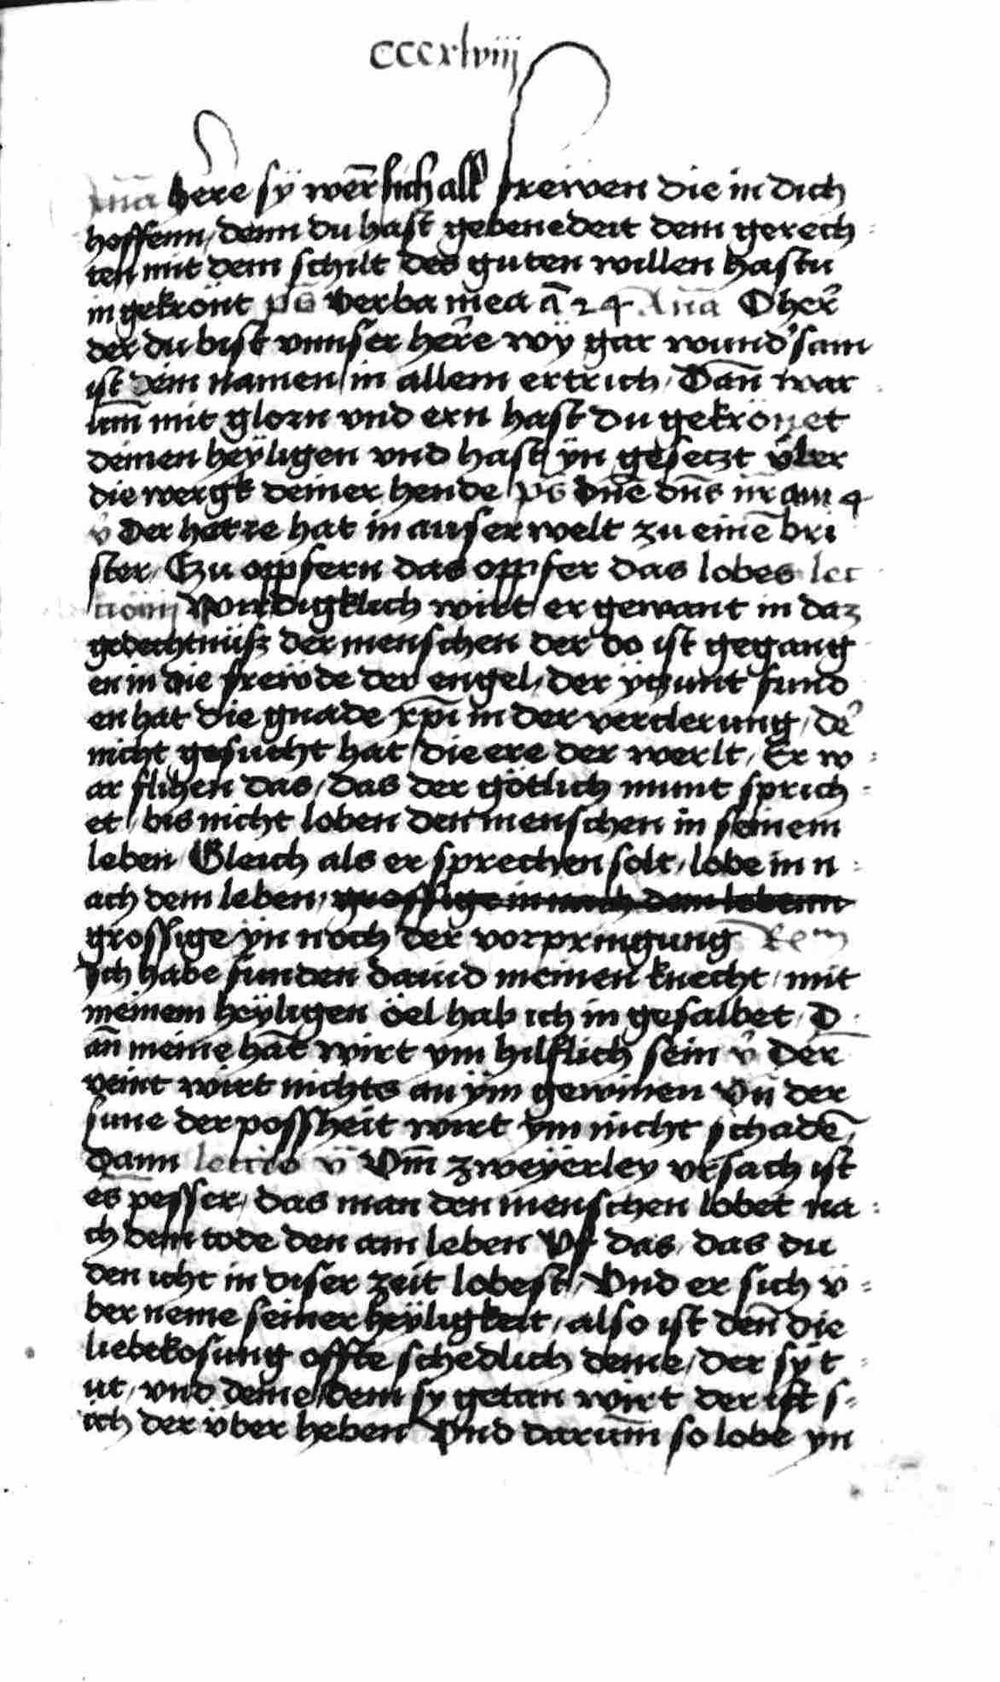 cccxlviij
Añã here sÿ wer̄ sich all freẅen die in dich
hoffenn / denn du hast gebenedeit dem gerech
ten mit dem schilt des guten willen hastu
in gekrönt ps̄ verba mea Añã O her̄
der du bist vnnser here wÿ gar wund'sam
ist dein namen in allem ertrich / Dan̄ war
um̄ mit glorn vnd ern hast du gekrönet
deinen heÿligen vnd hast ÿn gesetzt ÿber
die wergk deiner hende ps̄ dn̄e dn̄s nr̄
v̄ Der herre hat in auserwelt zu eine͞ bri
ster / Czu opfern das opfer das lobes lec
tio iiij Wirdigklich wirt er gewant in daz
gedechtnüsz der menschen der do ist gegang
en in die freẅde der engel / der ÿtzunt fund
en hat die gnade xp̄i in der verclerung / de'
nicht gesucht hat die ere der werlt / Er w
ar flihen das / das der götlich munt sprich
et / bis nicht loben den menschen in seinem
leben Gleich als er sprechen solt / lobe in n
ach dem leben / grossige in nach dem lebenn
grossige ÿn noch der vorpringung Rem
Ich habe funden dauid meinen knecht / mit
meinem heÿligen öel hab ich in gesalbet / D
an̄ meine hāt wirt ym hilflich sein v̄ Der
veint wirt nichts an ÿm gewinen Vn̄ der
sune der possheit wirt ym nicht schade͞ /
Dann lectio v̄ Vm̄ zweÿerley vrsach ist
es pesser / das man den menschen lobet na
ch dem tode den am leben Vf das / das du
den icht in diser zeit lobest / Vnd er sich ü
ber neme seiner heÿligkeit / also ist den̄ die
liebekosung offte schedlich deme / der sÿ t
ut / vnd deme dem sy getan wirt der ist s
ich der über heben Vnd darum̄ so lobe yn